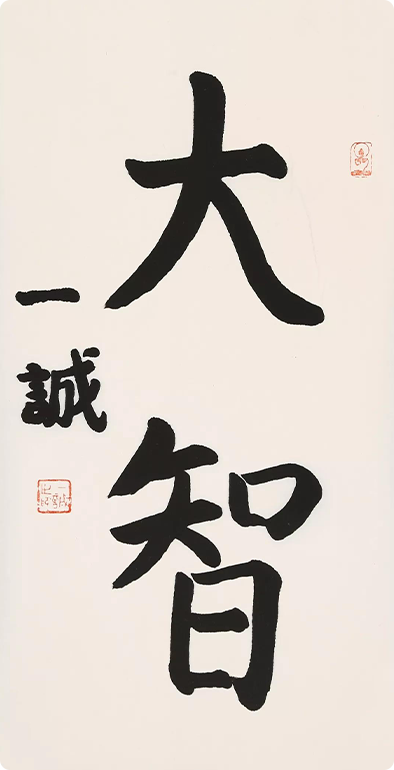 大智
一誠